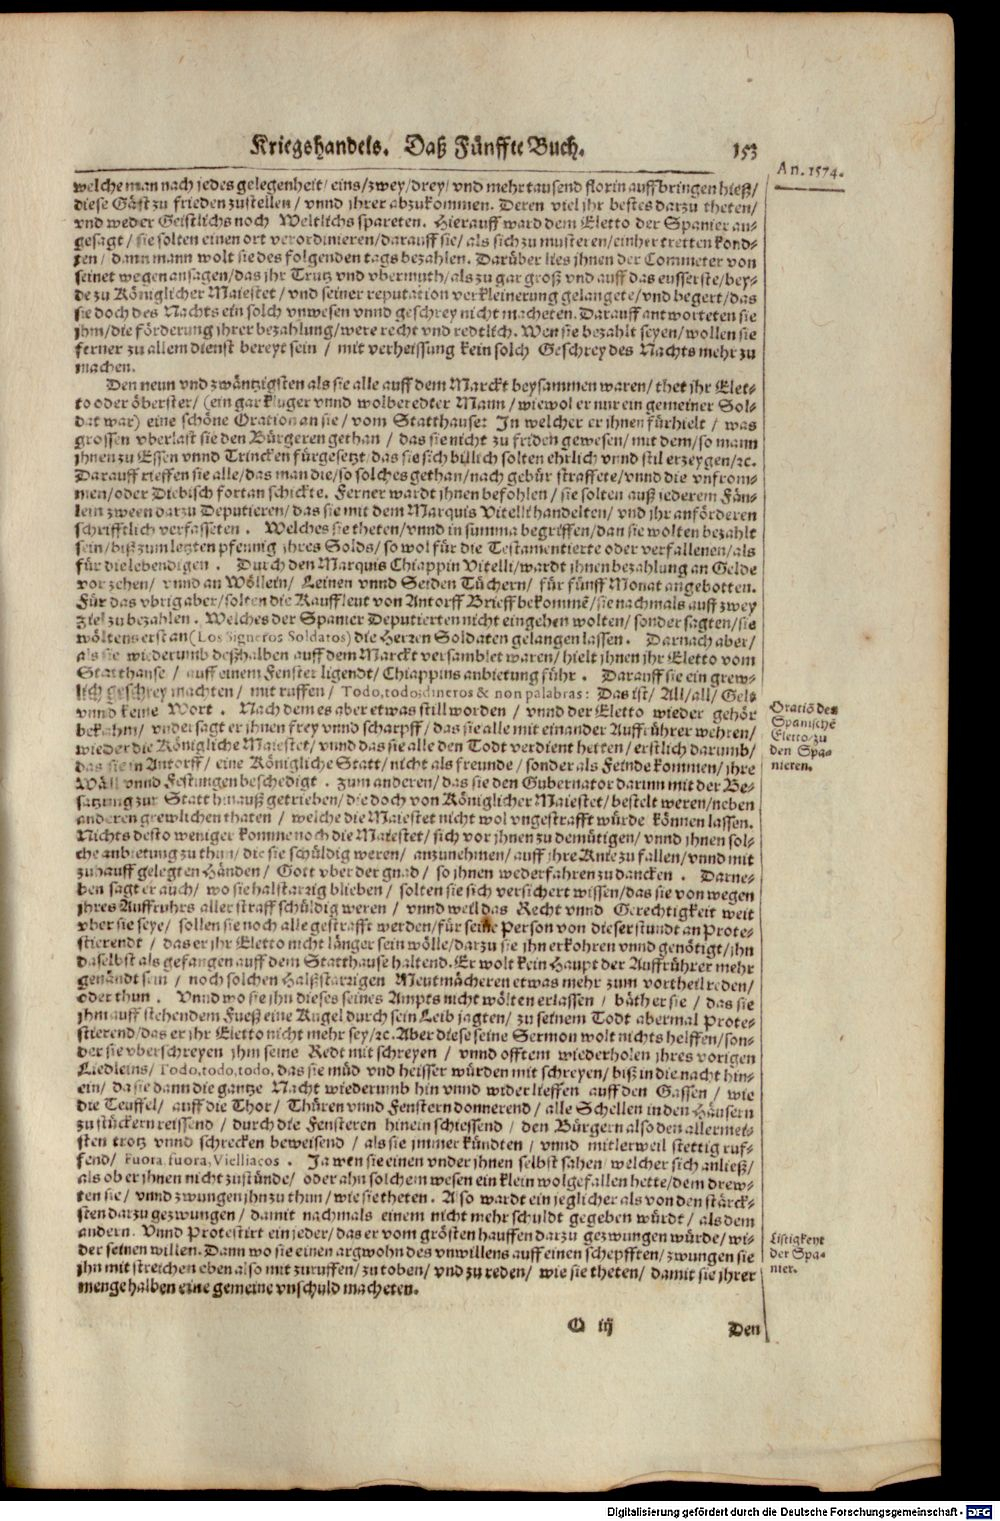 Kriegshandels. Daß Fünffte Buch. 153
An. 1574.
welche man nach jedes gelegenheit/ eins/zwey/drey/ vnd mehr tausend florin auffbringen hieß/
diese Gäst zu frieden zustellen/ vnnd jhrer abzukommen. Deren viel jhr bestes darzu theten/
vnd weder Geistlichs noch Weltlichs spareten. Hierauff ward dem Eletto der Spanier an-
gesagt/ sie solten einen ort verordinieren/darauff sie/ als sich zu musteren/einher tretten kond-
ten/ dann mann wolt sie des folgenden tags bezahlen. Darüber lies jhnen der Commeter von
seinet wegen ansagen/das jhr Trutz vnd vbermuth/als zu gar groß vnd auff das eusserste/bey-
de zu Königlicher Maiestet/ vnd seiner reputation verkleinerung gelangete/vnd begert/das
sie doch des Nachts ein solch vnwesen vnnd geschrey nicht macheten. Darauff antworteten sie
jhm/die förderung jhrer bezahlung/were recht vnd redtlich. Wen sie bezahlt seyen/wollen sie
ferner zu allem dienst bereyt sein / mit verheissung kein solch Geschrey des Nachts mehr zu
machen.
Den neun vnd zwäntzigsten als sie alle auff dem Marckt beysammen waren/ thet jhr Elet-
to oder öberster/ (ein gar kluger vnnd wolberedter Mann/ wiewol er nur ein gemeiner Sol-
dat war) eine schöne Oration an sie/ vom Statthause: In welcher er jhnen fürhielt / was
grossen vberlast sie den Bürgeren gethan / das sie nicht zu friden gewesen/ mit dem/so mann
jhnen zu Essen vnnd Trincken fürgesetzt/das sie sich billich solten ehrlich vnnd stil erzeygen/ꝛc.
Darauff rieffen sie alle/das man die/so solches gethan/nach gebür straffete/vnnd die vnfrom-
men/oder Diebisch fortan schickte. Ferner wardt jhnen befohlen / sie solten auß jederem Fän-
lein zween darzu Deputieren/das sie mit dem Marquis Vitelli handelten/ vnd jhr anförderen
schrifftlich verfasseten . Welches sie theten/vnnd in summa begriffen/dan sie wolten bezahlt
sein/biß zum letzten pfennig jhres Solds/ so wol für die Testamentierte oder verfallenen/als
für die lebendigen . Durch den Marquis Chiappin Vitelli/wardt jhnen bezahlung an Gelde
vor zehen/ vnnd an Wöllein/ Leinen vnnd Seiden Tüchern/ für fünff Monat angebotten.
Für das vbrig aber/solten die Kauffleut von Antorff Brieff bekommē/sie nachmals auff zwey
Ziel zu bezahlen . Welches der Spanier Deputierten nicht eingehen wolten/ sonder sagten/sie
wöltens erst an (Los Signeros Soldatos) die Herren Soldaten gelangen lassen. Darnach aber/
als sie wiederumb deßhalben auff dem Marckt versamblet waren/ hielt jhnen jhr Eletto vom
Statthause / auff einem Fenster ligendt/ Chiappins anbietung führ . Darauff sie ein grew-
lich geschrey machten / mit ruffen/ Todo, todo, dineros & non palabras: Das ist/ All/all/ Gelt
vnnd keine Wort . Nach dem es aber etwas still worden / vnnd der Eletto wieder gehör
bekahm/ vndersagt er jhnen frey vnnd scharpff/ das sie alle mit einander Auffrührer wehren/
wieder die Königliche Maiestet/ vnnd das sie alle den Todt verdient hetten/ erstlich darumb/
das sie in Antorff/ eine Königliche Statt/nicht als freunde/ sonder als Feinde kommen/ jhre
Wäll vnnd Festungen beschedigt . Zum anderen/ das sie den Gubernator darinn mit der Be-
satzung zur Statt hinauß getrieben/ die doch von Königlicher Maiestet/ bestelt weren/neben
anderen grewlichen thaten / welche die Maiestet nicht wol vngestrafft würde können lassen.
Nichts desto weniger komme noch die Maiestet/ sich vor jhnen zu demütigen/ vnnd jhnen sol-
che anbietung zu thun/ die sie schüldig weren/ anzunehmen/ auff jhre Knie zu fallen/vnnd mit
zuhauff gelegten Händen/ Gott vber der gnad/ so jhnen wederfahren zu dancken . Darne-
ben sagt er auch/ wo sie halstarrig blieben / solten sie sich versichert wissen/das sie von wegen
jhres Auffruhrs aller straff schüldig weren / vnnd weil das Recht vnnd Gerechtigkeit weit
vber sie seye/ sollen sie noch alle gestrafft werden/für seine Person von dieser stundt an Prote-
stierendt / das er jhr Eletto nicht länger sein wölle/darzu sie jhn erkohren vnnd genötigt/jhn
daselbst als gefangen auff dem Statthause haltend. Er wolt kein Haupt der Auffrührer mehr
genändt sein / noch solchen Halßstarrigen Meutmächeren etwas mehr zum vortheil reden/
oder thun . Vnnd wo sie jhn dieses seines Ampts nicht wölten erlassen / bäth er sie / das sie
jhm auff stehendem Fueß eine Kugel durch sein Leib jagten/ zu seinem Todt abermal Prote-
stierend/das er jhr Eletto nicht mehr sey/ꝛc. Aber diese seine Sermon wolt nichts helffen/son-
der sie vberschreyen jhm seine Redt mit schreyen / vnnd offtem wiederholen jhres vorigen
Liedleins/ Todo, todo, todo, das sie müd vnd heisser würden mit schreyen/ biß in die nacht hin-
ein/ da sie dann die gantze Nacht wiederumb hin vnnd wider lieffen auff den Gassen / wie
die Teuffel/ auff die Thor/ Thüren vnnd Fenstern donnerend/ alle Schellen in den Häusern
zu stückern reissend / durch die Fensteren hinein schiessend / den Bürgern also den allermei-
sten trotz vnnd schrecken beweisend / als sie jmmer kündten / vnnd mitlerweil stettig ruf-
fend/ Fuora, fuora, Vielliacos . Ja wen sie einen vnder jhnen selbst sahen/ welcher sich anließ/
als ob er jhnen nicht zustünde/ oder ahn solchem wesen ein klein wolgefallen hette/dem drew-
ten sie/ vnnd zwungen jhn zu thun/ wie sie theten. Also wardt ein jeglicher als von den stärck-
sten darzu gezwungen/ damit nachmals einem nicht mehr schuldt gegeben würdt/ als dem
andern. Vnnd Protestirt ein jeder/das er vom grösten hauffen darzu gezwungen würde/ wi-
der seinen willen. Dann wo sie einen argwohn des vnwillens auff einen schepfften/zwungen sie
jhn mit streichen eben also mit zu ruffen/ zu toben/ vnd zu reden/ wie sie theten/ damit sie jhrer
menge halben eine gemeine vnschuld macheten.
Oratiō des
Spanischē
Eletto/zu
den Spa-
nieren.
Listigkeyt
der Spa-
nier.
Q iij Den
Digitalisierung gefördert durch die Deutsche Forschungsgemeinschaft - DFG